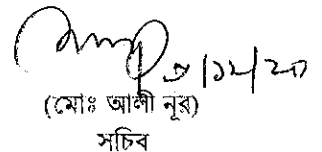 /১২/২০
(মোঃ আলী নূর)
সচিব